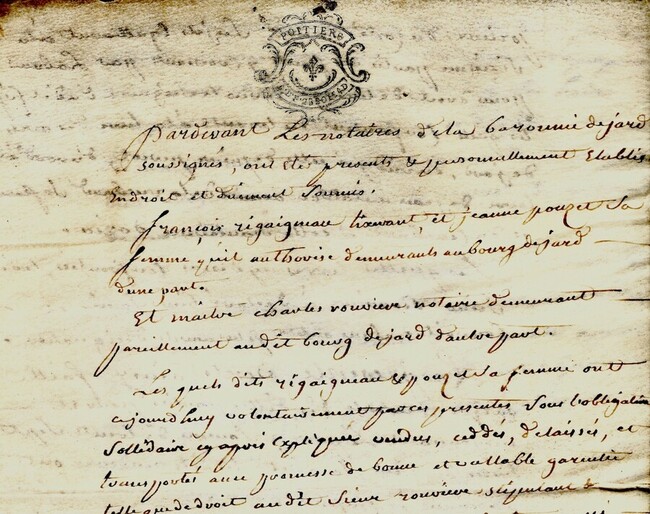 POITIERS
Pardevant Les notaires de la baronnie dejard
soussignés, ont Eté presents & personnellement Etablis
Endroit et duement soumis.
françois rigaigneau tixerant, et jeanne pouzet Sa
femme qu'il authorise demeurants au bourg dejard
dune part.
Et maitre charles rouviere notaire demeurant
pareillement audit bourg dejard dautre part.
Les quels dits rigaigneau & pouzet Sa femme ont
cejourdhuy volontairement par ces presentes Sous l'obligation
Sollidaire cy apres Expliquée vendus, ceddés, delaissés, et
transportés avec promesse de bonne et vallable garentie
telle que de droit audit Sieur rouviere stipulant &